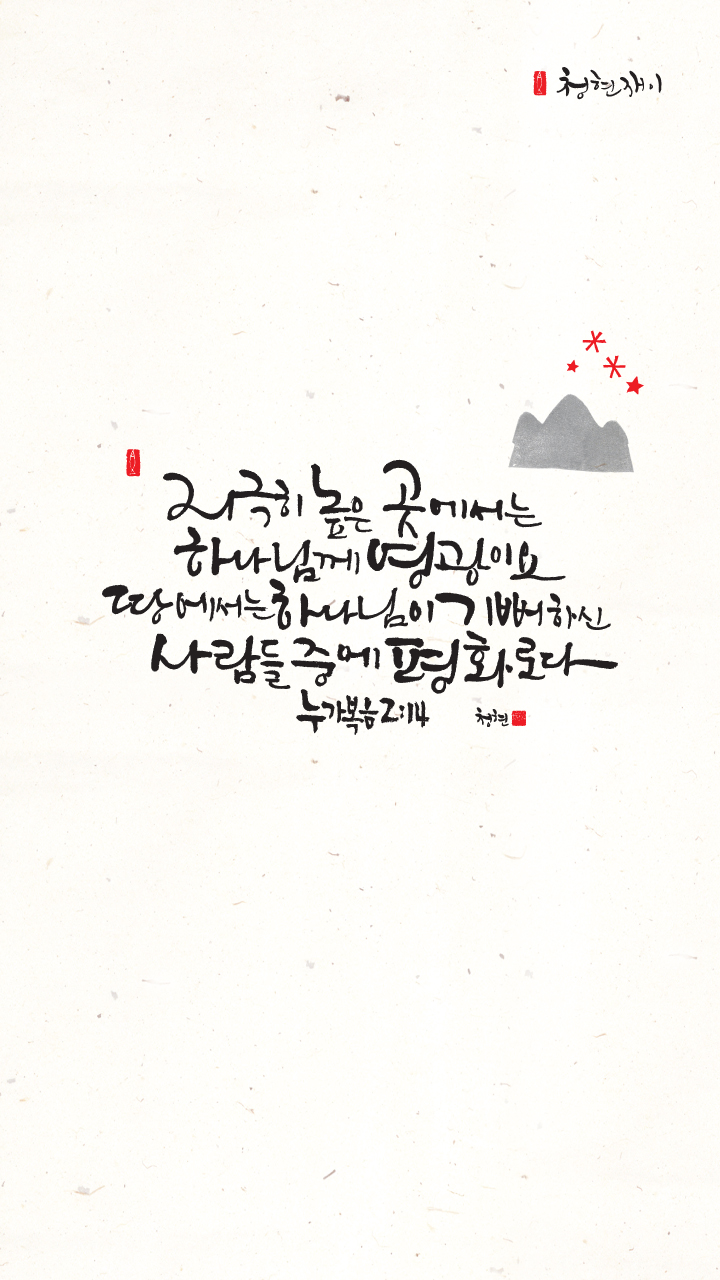 청현재이
지극히 높은 곳에서는
하나님께 영광이요
땅에서는 하나님이 기뻐하신
사람들 중에 평화로다
누가복음 2:14
청현